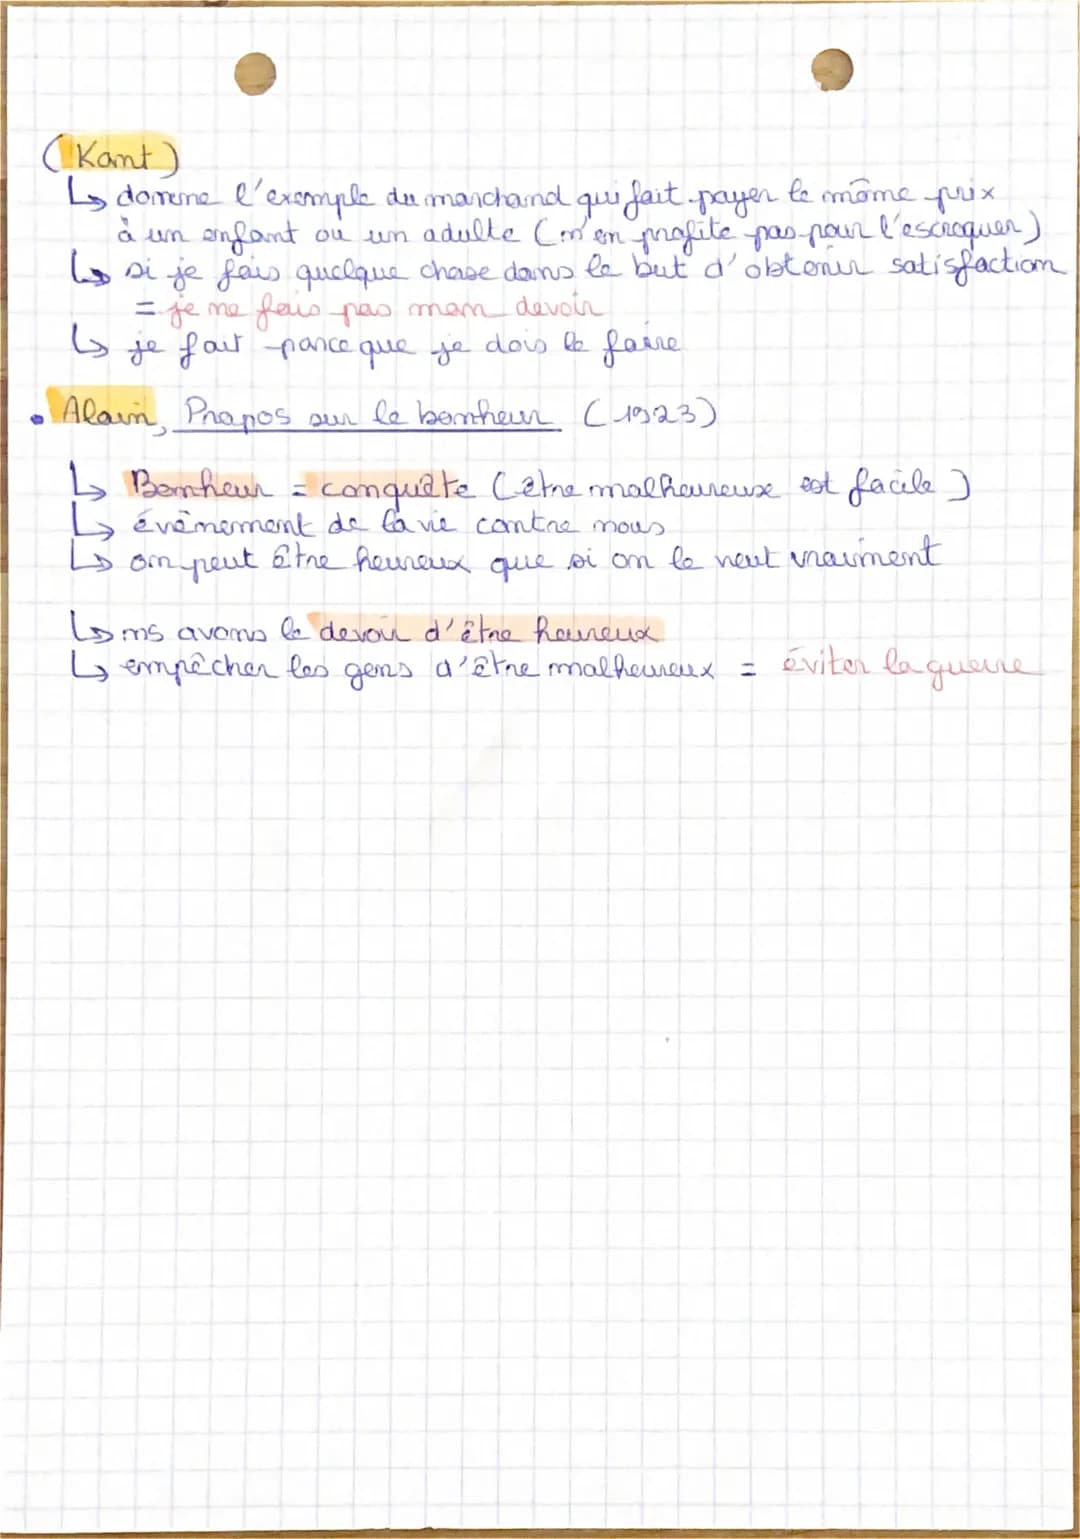 (Kant)
↳ donne l'exemple du marchand qui fait payer le même prix
à un enfant ou un adulte (n'en profite pas pour l'escroquer)
↳ si je fais quelque chose dans le but d'obtenir satisfaction
= je ne fais pas mon devoir
↳ je fait parce que je dois le faire
• Alain, Propos sur le bonheur (1923)
↳ Bonheur = conquête (être malheureuse est facile)
↳ évènement de la vie contre nous
↳ on peut être heureux que si on le veut vraiment
↳ ns avons le devoir d'être heureux
↳ empêcher les gens d'être malheureux = éviter la guerre